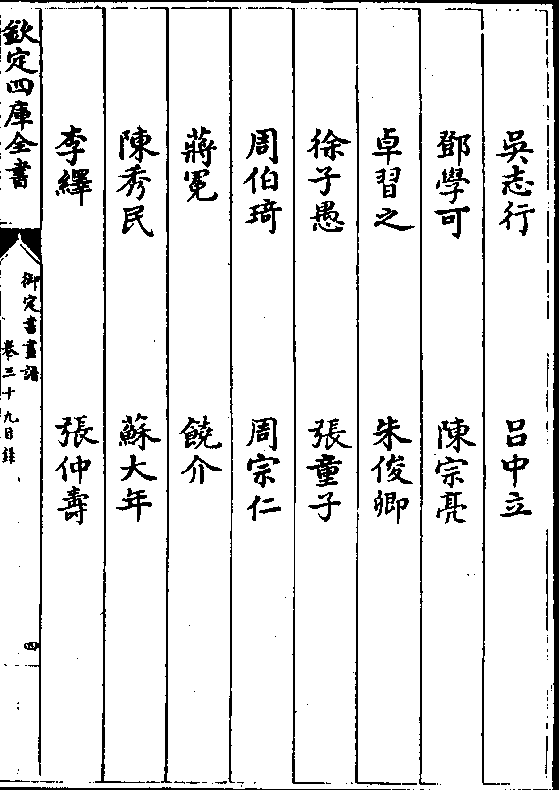 吳志行　吕中立
鄧學可　陳宗亮
卓習之　朱俊卿
徐子愚　張童子
周伯琦　周宗仁
蔣冕　饒介
陳秀民　蘇大年
李繹　張仲壽
欽定四庫全書
御定書畫譜
卷三十九目錄
四